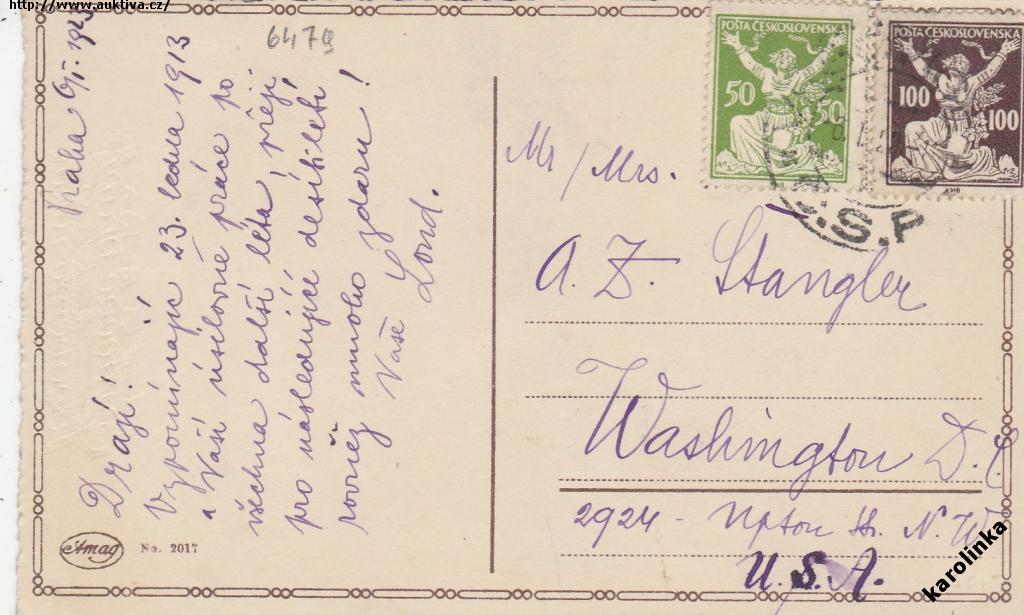 http://www.auktiva.cz/
6479
Praha 9/I. 1923
Drazí!
Vzpomínajíc 23. ledna 1913
a Vaší úsilovné práce po
všechna další léta, přeji
pro následující desítiletí
rovněž mnoho zdaru!
Vaše
Lond.
Amag
No. 2017
POŠTA ČESKOSLOVENSKÁ
50 50
POŠTA ČESKOSLOVENSKÁ
100 100
Č.S.P.
Mr/Mrs.
A. Z. Stangler
Washington D.C.
2924 - Upton Str. N.W.
U.S.A.
karolinka